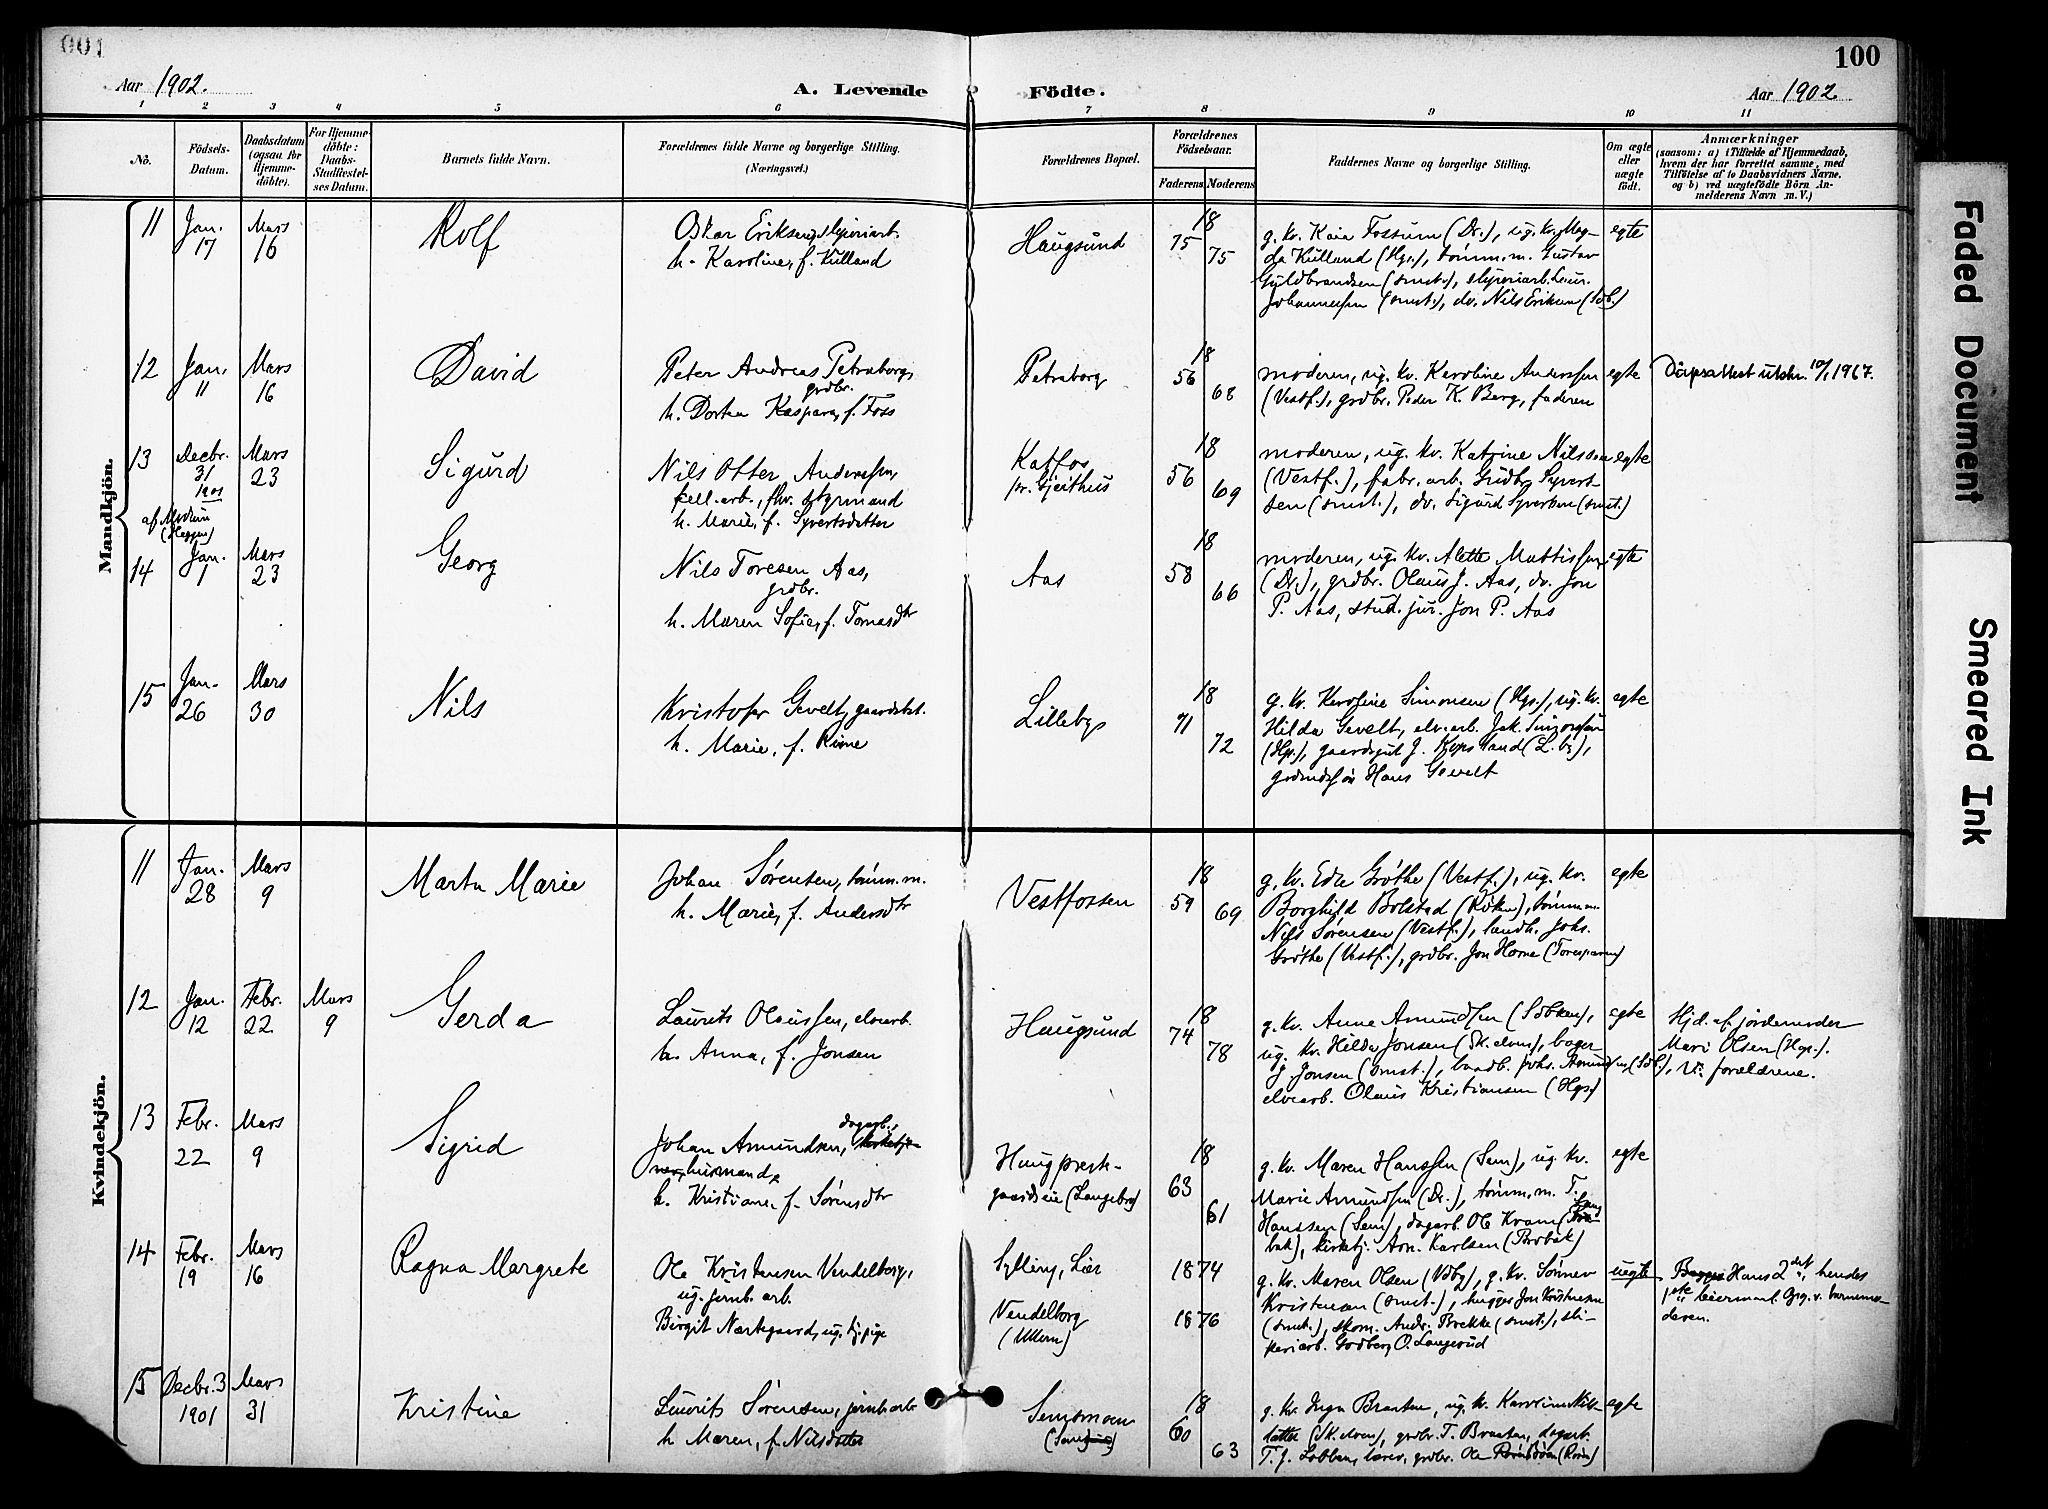 001
100
Aar 1902.
A. Levende
Födte.
Aar 1902
1 2 3 4 5 6 7 8 9 10 11
No.
Födsels-Datum.
Daabsdatum (ogsaa for Hjemme-döbte).
For Hjemme-döbte: Daabs-Stadfæstel-ses Datum.
Barnets fulde Navn.
Forældrenes fulde Navne og borgerlige Stilling.
(Næringsvei.)
Forældrenes Bopæl.
Forældrenes Födselsaar.
Faderens Moderens
Faddernes Navne og borgerlige Stilling.
Om ægte eller uægte födt.
Anmærkninger
(saasom: a) i Tilfælde af Hjemmedaab, hvem der har forrettet samme, med Tilföielse af to Daabsvidners Navne, og b) ved uægtefödte Börn An-melderens Navn m. V.)
Mandkjön.
11 Jan. 17 Mars 16 Rolf
Oskar Eriksen, sliperiarb.
h. Karoline, f. Kulland
Haugsund
18 75 75
g. kv. Kaia Fossum (Dr.), ug. kv. Mag-
da Kulland (Hgs.), tømm.m. Gustav
Guldbrandsen (smst.), sliperiarb. Laur.
Johannessen (smst.), dv. Nils Eriksen (Sdb.)
egte
12 Jan. 11 Mars 16 David
Peter Andreas Petraborg,
grdbr.
h. Dortea Kaspara, f. Foss
Petraborg
18 56 68
moderen, ug. kv. Karoline Anderssen
(Vestf.), grdbr. Peder K. Berg, faderen
egte
Dåpsattest utskr. 10/1 1967.
13 Decbr. 31 1901 Mars 23 Sigurd
af Modum
(Heggen)
Nils Otter Anderssen,
cell.arb., fhv. styrmand
h. Marie, f. Syvertsdatter
Katfos
pr. Gjeithus
18 56 69
moderen, ug. kv. Katrine Nilssen
(Vestf.), fabr. arb. Gudbr. Syvert
sen (smst.), dv. Sigurd Syvertsen (smst.)
egte
14 Jan. 1 Mars 23 Georg
Nils Toresen Aas,
grdbr.
h. Maren Sofie, f. Tomasdtr
Aas
18 58 66
moderen, ug. kv. Alette Mattissen
(Dr.), grdbr. Olaus J. Aas, dv. Jon
P. Aas, stud. jur. Jon P. Aas
egte
15 Jan. 26 Mars 30 Nils
Kristofer Gevelt, gaardbest.
h. Marie, f. Kime
Lilleby
18 71 72
g. kv. Karoline Simonsen (Hgs.), ug. kv.
Hilda Gevelt, elv.arb. Jak. Simonsen
(Hgs.), gaardsgut J. Kopsland (L.by),
grdmdssøn Hans Gevelt
egte
Kvindekjön.
11 Jan. 28 Mars 9 Marta Marie
Johan Sørensen, tømm.m.
h. Marie, f. Andersdtr
Vestfossen
18 59 69
g. kv. Edle Grøthe (Vestf.), ug. kv.
Borghild Bolstad (Røken), tømm.m.
Nils Sørensen (Vestf.), landh. Johs.
Grøthe (Vestf.), grdbr. Jon Horne
egte
12 Jan. 12 Febr. 22 Mars 9 Gerda
Laurits Olaussen, elvearb.
h. Anna, f. Jonsen
Haugsund
18 74 78
g. kv. Anna Amundsen (Sdbken),
ug. kv. Hilda Jonsen (Sk.elven), bager
J. Jonsen (smst.), baadb. Johs. Amundsen (Sdb.),
elvearb. Olaus Kristiansen (Hgs)
egte
Hjd. af jordemoder
Mari Olsen (Hgs.).
V: forældrene.
13 Febr. 22 Mars 9 Sigrid
dagarb.,
Johan Amundsen, kirketje-
ner, husmand,
h. Kristiane, f. Sørensdtr
Haug prest-
gaardseie (Langebro)
18 63 61
g. kv. Maren Hanssen (Sem), ug. kv.
Marie Amundsen (Dr.), tømm.m. T.
Hanssen (Sem), dagarb. Ole Kram
bak), kirketj. Aon. Karlsen (Brobak)
egte
14 Febr. 19 Mars 16 Ragna Margrete
Ole Kristensen Vendelborg,
ug. jernb. arb.
Birgit Nærtegaard, ug. tj.pige
Sylling, Lier
Vendelborg
(Ullern)
1874
1876
g. kv. Maren Olsen (Vdbg), g. kv. Sønnev
Kristensen (smst.), hugger Jon Kristensen
(smst.), skom. Andr. Brekke (smst.), sli-
periarb. Godberg O. Langerud
uegte
Hans 2det, hendes
1ste leiermaal. Opg. v. barnemo-
deren.
15 Decbr. 3 1901 Mars 31 Kristine
Laurits Sørensen, jernb.arb.
h. Maren, f. Nilsdatter
Semsmoen
18 60 63
g. kv. Inga Braaten, ug. kv. Karoline Nils-
datter (Sk.elven), grdbr. T. Braaten, dagarb.
T. J. Lobben, lærer, grdbr. Ole
egte
Faded Document
Smeared Ink